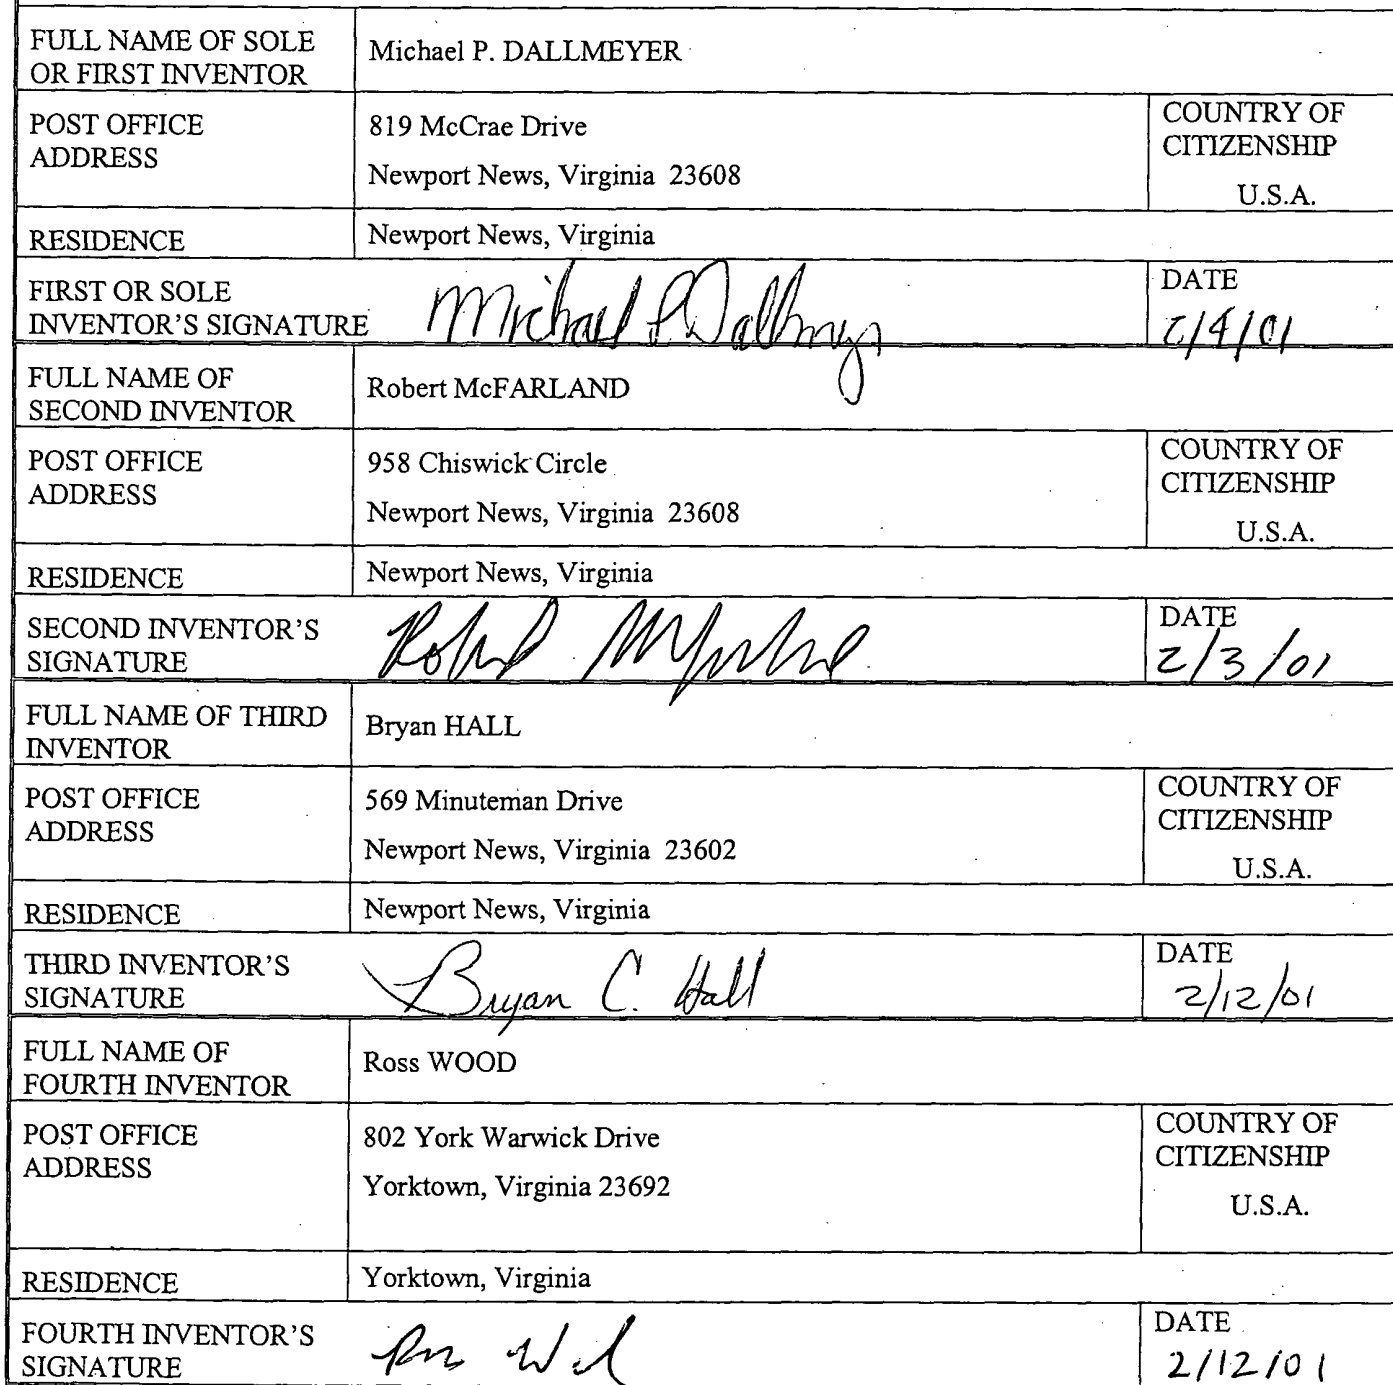 FULL NAME OF SOLE
OR FIRST INVENTOR
Michael P. DALLMEYER
POST OFFICE
ADDRESS
819 McCrae Drive
Newport News, Virginia 23608
COUNTRY OF
CITIZENSHIP
U.S.A.
RESIDENCE
Newport News, Virginia
FIRST OR SOLE
INVENTOR'S SIGNATURE
Michael P. Dallmeyer
DATE
2/4/01
FULL NAME OF
SECOND INVENTOR
Robert McFARLAND
POST OFFICE
ADDRESS
958 Chiswick Circle
Newport News, Virginia 23608
COUNTRY OF
CITIZENSHIP
U.S.A.
RESIDENCE
Newport News, Virginia
SECOND INVENTOR'S
SIGNATURE
Robert McFarland
DATE
2/3/01
FULL NAME OF THIRD
INVENTOR
Bryan HALL
POST OFFICE
ADDRESS
569 Minuteman Drive
Newport News, Virginia 23602
COUNTRY OF
CITIZENSHIP
U.S.A.
RESIDENCE
Newport News, Virginia
THIRD INVENTOR'S
SIGNATURE
Bryan C. Hall
DATE
2/12/01
FULL NAME OF
FOURTH INVENTOR
Ross WOOD
POST OFFICE
ADDRESS
802 York Warwick Drive
Yorktown, Virginia 23692
COUNTRY OF
CITIZENSHIP
U.S.A.
RESIDENCE
Yorktown, Virginia
FOURTH INVENTOR'S
SIGNATURE
Ross Wood
DATE
2/12/01